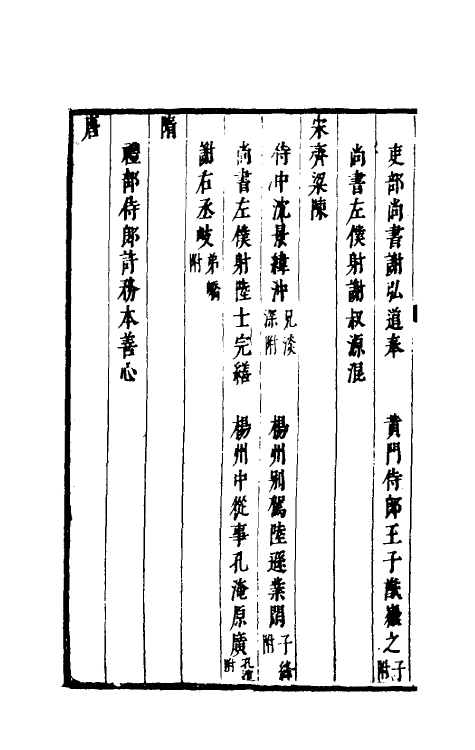 吏部尚書謝弘道奉 黃門侍郎王子猷徽之子附
尚書左僕射謝叔源混
宋齊梁陳
侍中沈景綽沖兄淡深附 楊州別駕陸遜業閒子絳附
尚書左僕射陸士完繕 楊州中從事孔淹原廣孔附
謝右丞岐弟嶠附
隋
禮部侍郎許務本善心
唐